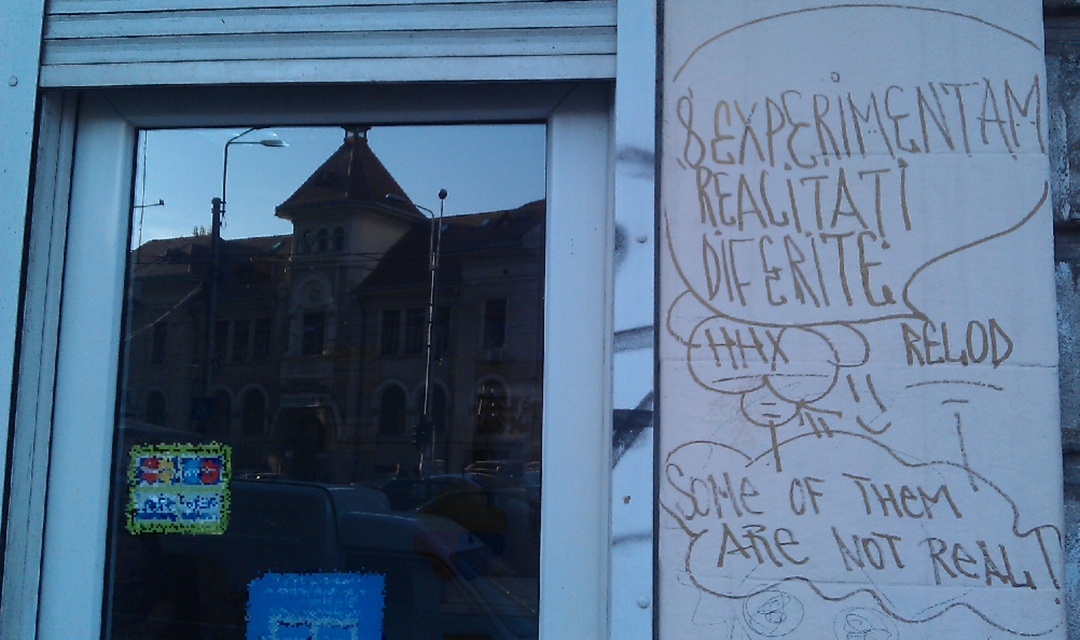 8 EXPERIMENTAM
REALITATI
DIFERITE
HHX
RELOD
SOME OF THEM
ARE NOT REAL!